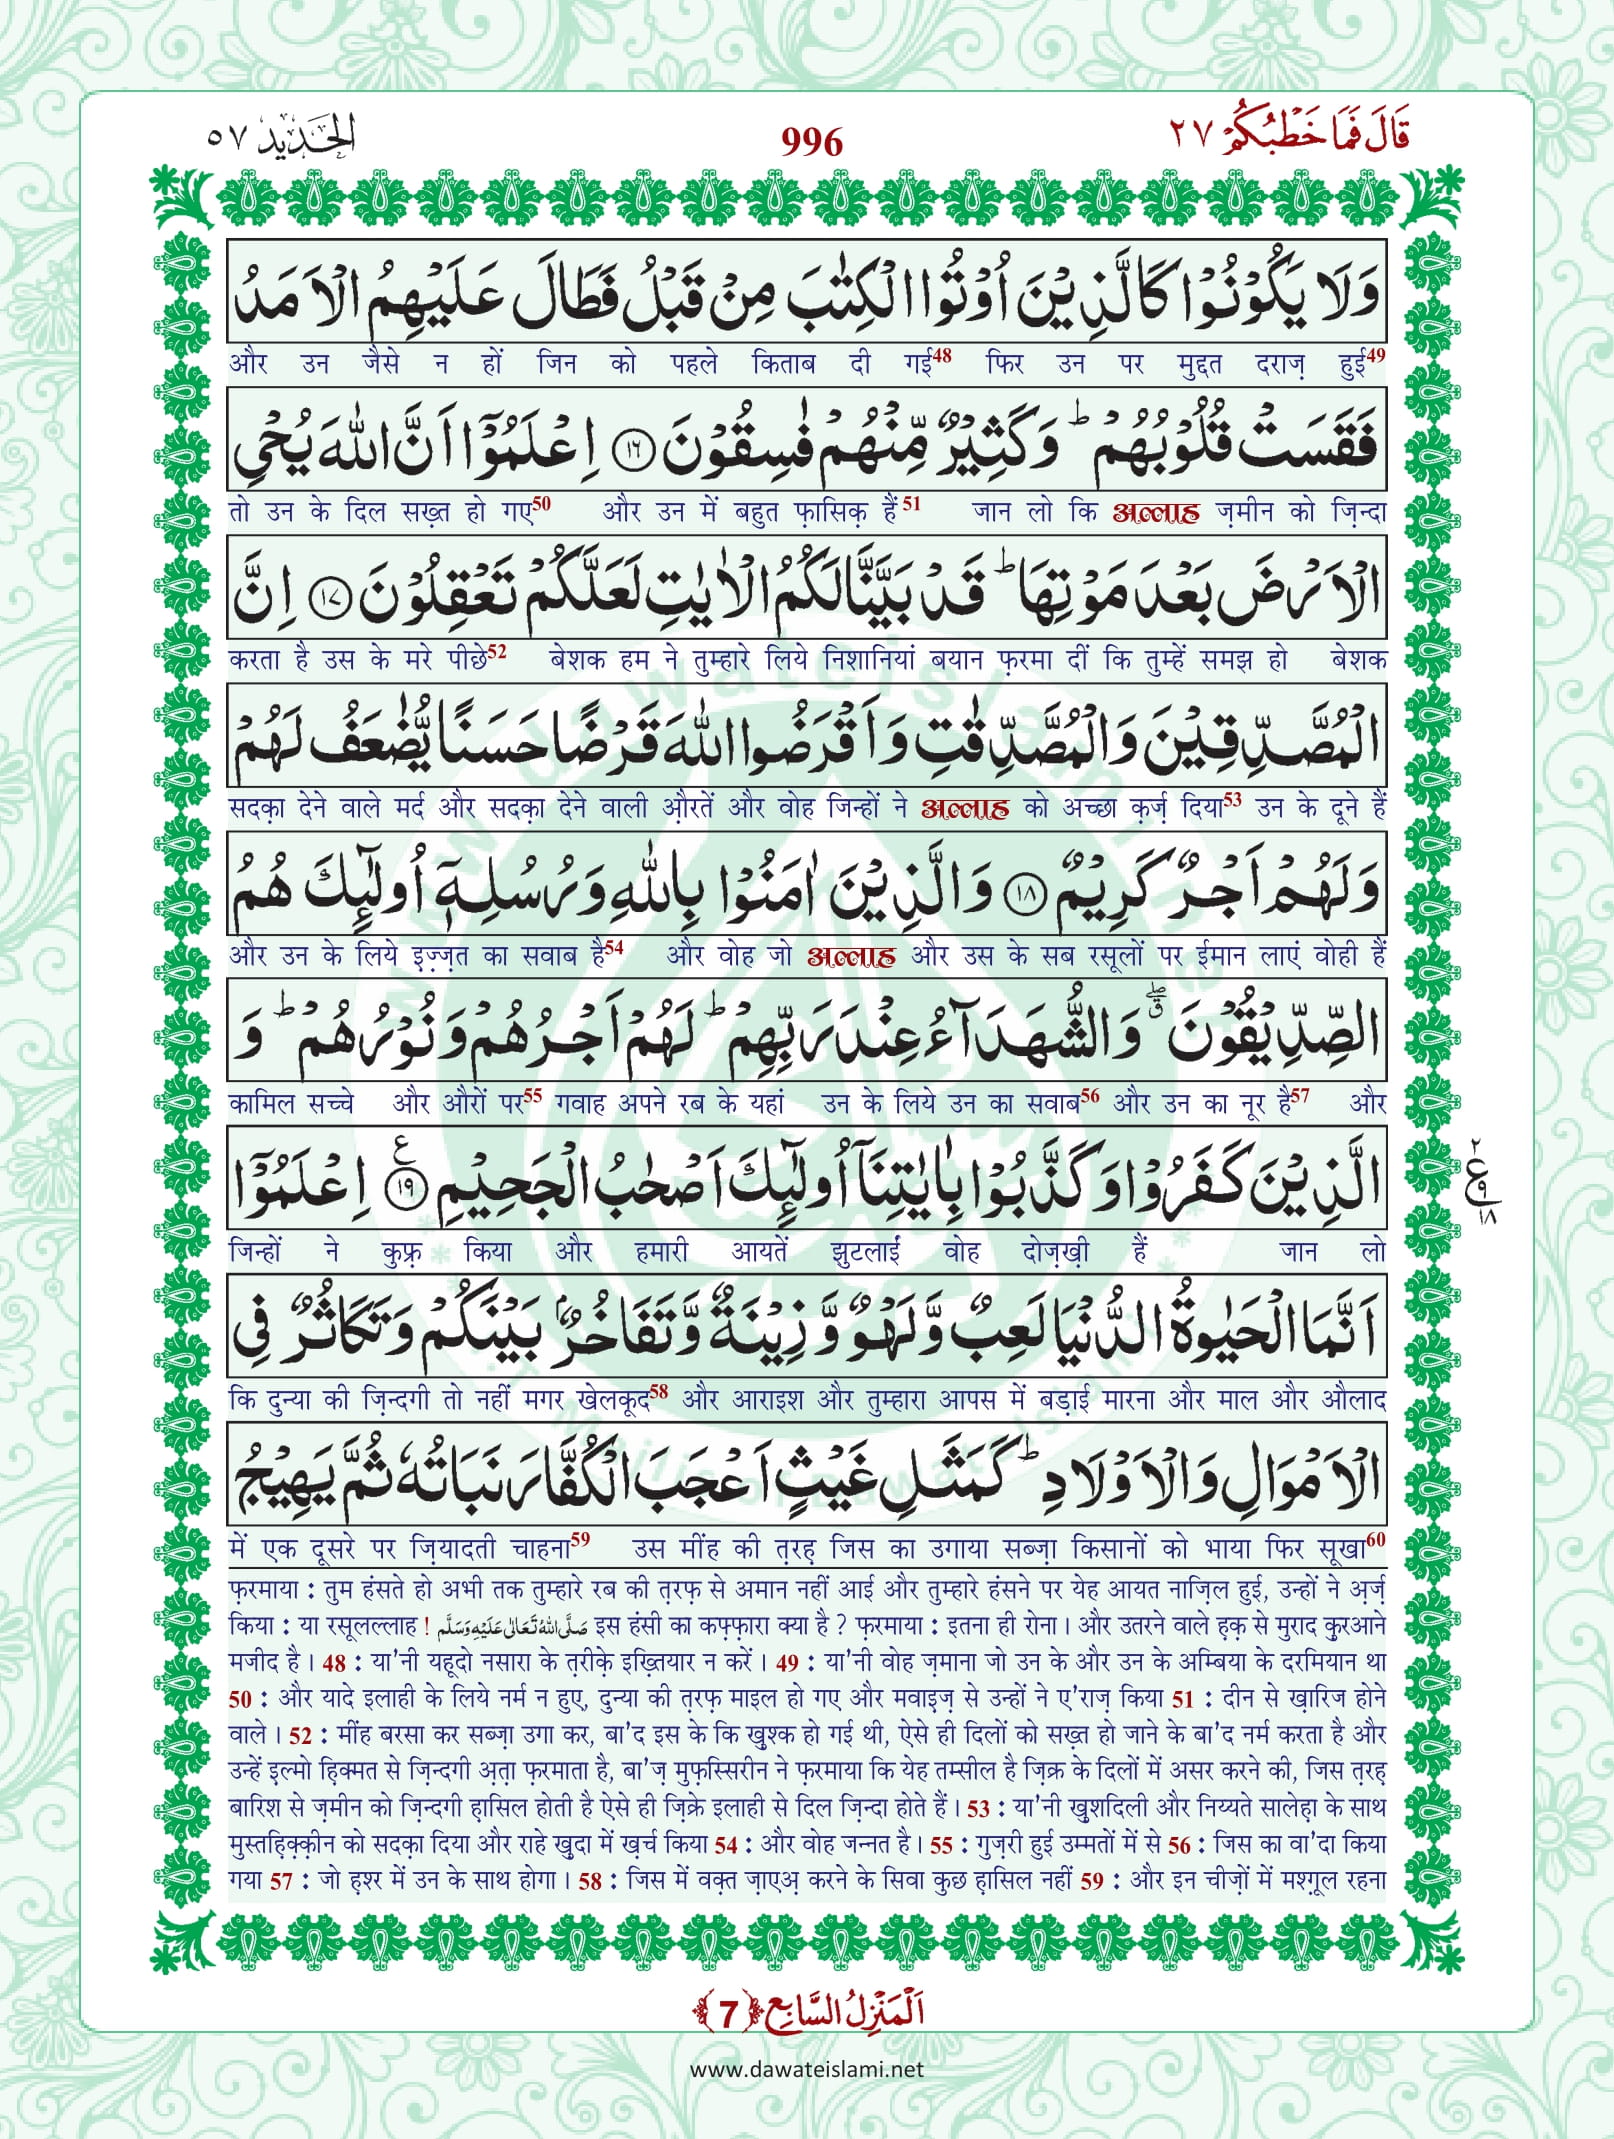 قَالَ فَمَا خَطْبُكُمْ ٢٧
996
الحديد ٥٧
وَلَا يَكُوْنُوْا كَالَّذِيْنَ اُوْتُوا الْكِتٰبَ مِنْ قَبْلُ فَطَالَ عَلَيْهِمُ الْاَمَدُ
और उन जैसे न हों जिन को पहले किताब दी गई48 फिर उन पर मुद्दत दराज़ हुई49
فَقَسَتْ قُلُوْبُهُمْ ؕ وَكَثِيْرٌ مِّنْهُمْ فٰسِقُوْنَ ﴿۱۶﴾ اِعْلَمُوْۤا اَنَّ اللّٰهَ يُحْيِ
तो उन के दिल सख़्त हो गए50 और उन में बहुत फ़ासिक़ हैं51 जान लो कि अल्लाह ज़मीन को ज़िन्दा
الْاَرْضَ بَعْدَ مَوْتِهَا ؕ قَدْ بَيَّنَّا لَكُمُ الْاٰيٰتِ لَعَلَّكُمْ تَعْقِلُوْنَ ﴿۱۷﴾ اِنَّ
करता है उस के मरे पीछे52 बेशक हम ने तुम्हारे लिये निशानियां बयान फ़रमा दीं कि तुम्हें समझ हो बेशक
الْمُصَّدِّقِيْنَ وَالْمُصَّدِّقٰتِ وَاَقْرَضُوا اللّٰهَ قَرْضًا حَسَنًا يُّضٰعَفُ لَهُمْ
सदक़ा देने वाले मर्द और सदक़ा देने वाली औ़रतें और वोह जिन्हों ने अल्लाह को अच्छा क़र्ज़ दिया53 उन के दूने हैं
وَلَهُمْ اَجْرٌ كَرِيْمٌ ﴿۱۸﴾ وَالَّذِيْنَ اٰمَنُوْا بِاللّٰهِ وَرُسُلِهٖۤ اُولٰٓئِكَ هُمُ
और उन के लिये इ़ज़्ज़त का सवाब है54 और वोह जो अल्लाह और उस के सब रसूलों पर ईमान लाएं वोही हैं
الصِّدِّيْقُوْنَ ۖۗ وَالشُّهَدَآءُ عِنْدَ رَبِّهِمْ ؕ لَهُمْ اَجْرُهُمْ وَنُوْرُهُمْ ؕ وَ
कामिल सच्चे और औरों पर55 गवाह अपने रब के यहां उन के लिये उन का सवाब56 और उन का नूर है57 और
الَّذِيْنَ كَفَرُوْا وَكَذَّبُوْا بِاٰيٰتِنَاۤ اُولٰٓئِكَ اَصْحٰبُ الْجَحِيْمِ ﴿۱۹﴾ ع اِعْلَمُوْۤا
जिन्हों ने कुफ़्र किया और हमारी आयतें झुटलाईं वोह दोज़ख़ी हैं जान लो
٢ ع ٩ ١٨
اَنَّمَا الْحَيٰوةُ الدُّنْيَا لَعِبٌ وَّلَهْوٌ وَّزِيْنَةٌ وَّتَفَاخُرٌۢ بَيْنَكُمْ وَتَكَاثُرٌ فِي
कि दुन्या की ज़िन्दगी तो नहीं मगर खेलकूद58 और आराइश और तुम्हारा आपस में बड़ाई मारना और माल और औलाद
الْاَمْوَالِ وَالْاَوْلَادِ ؕ كَمَثَلِ غَيْثٍ اَعْجَبَ الْكُفَّارَ نَبَاتُهٗ ثُمَّ يَهِيْجُ
में एक दूसरे पर ज़ियादती चाहना59 उस मींह की त़रह़ जिस का उगाया सब्ज़ा किसानों को भाया फिर सूखा60
फ़रमाया : तुम हंसते हो अभी तक तुम्हारे रब की त़रफ़ से अमान नहीं आई और तुम्हारे हंसने पर येह आयत नाज़िल हुई, उन्हों ने अ़र्ज़
किया : या रसूलल्लाह ! صَلَّى اللهُ تَعَالٰى عَلَيْهِ وَسَلَّم इस हंसी का कफ़्फ़ारा क्या है ? फ़रमाया : इतना ही रोना । और उतरने वाले ह़क़ से मुराद क़ुरआने
मजीद है । 48 : या'नी यहूदो नसारा के त़रीक़े इख़्तियार न करें । 49 : या'नी वोह ज़माना जो उन के और उन के अम्बिया के दरमियान था
50 : और यादे इलाही के लिये नर्म न हुए, दुन्या की त़रफ़ माइल हो गए और मवाइज़ से उन्हों ने ए'राज़ किया 51 : दीन से ख़ारिज होने
वाले । 52 : मींह बरसा कर सब्ज़ा उगा कर, बा'द इस के कि खुश्क हो गई थी, ऐसे ही दिलों को सख़्त हो जाने के बा'द नर्म करता है और
उन्हें इल्मो ह़िक्मत से ज़िन्दगी अ़त़ा फ़रमाता है, बा'ज़ मुफ़स्सिरीन ने फ़रमाया कि येह तम्सील है ज़िक्र के दिलों में असर करने की, जिस त़रह़
बारिश से ज़मीन को ज़िन्दगी ह़ासिल होती है ऐसे ही ज़िक्रे इलाही से दिल ज़िन्दा होते हैं । 53 : या'नी खुशदिली और निय्यते सालेह़ा के साथ
मुस्तह़िक़्क़ीन को सदक़ा दिया और राहे खुदा में ख़र्च किया 54 : और वोह जन्नत है । 55 : गुज़री हुई उम्मतों में से 56 : जिस का वा'दा किया
गया 57 : जो ह़श्र में उन के साथ होगा । 58 : जिस में वक़्त ज़ाएअ़ करने के सिवा कुछ ह़ासिल नहीं 59 : और इन चीज़ों में मश्ग़ूल रहना
اَلْمَنْزِلُ السَّابِع ﴿7﴾
www.dawateislami.net